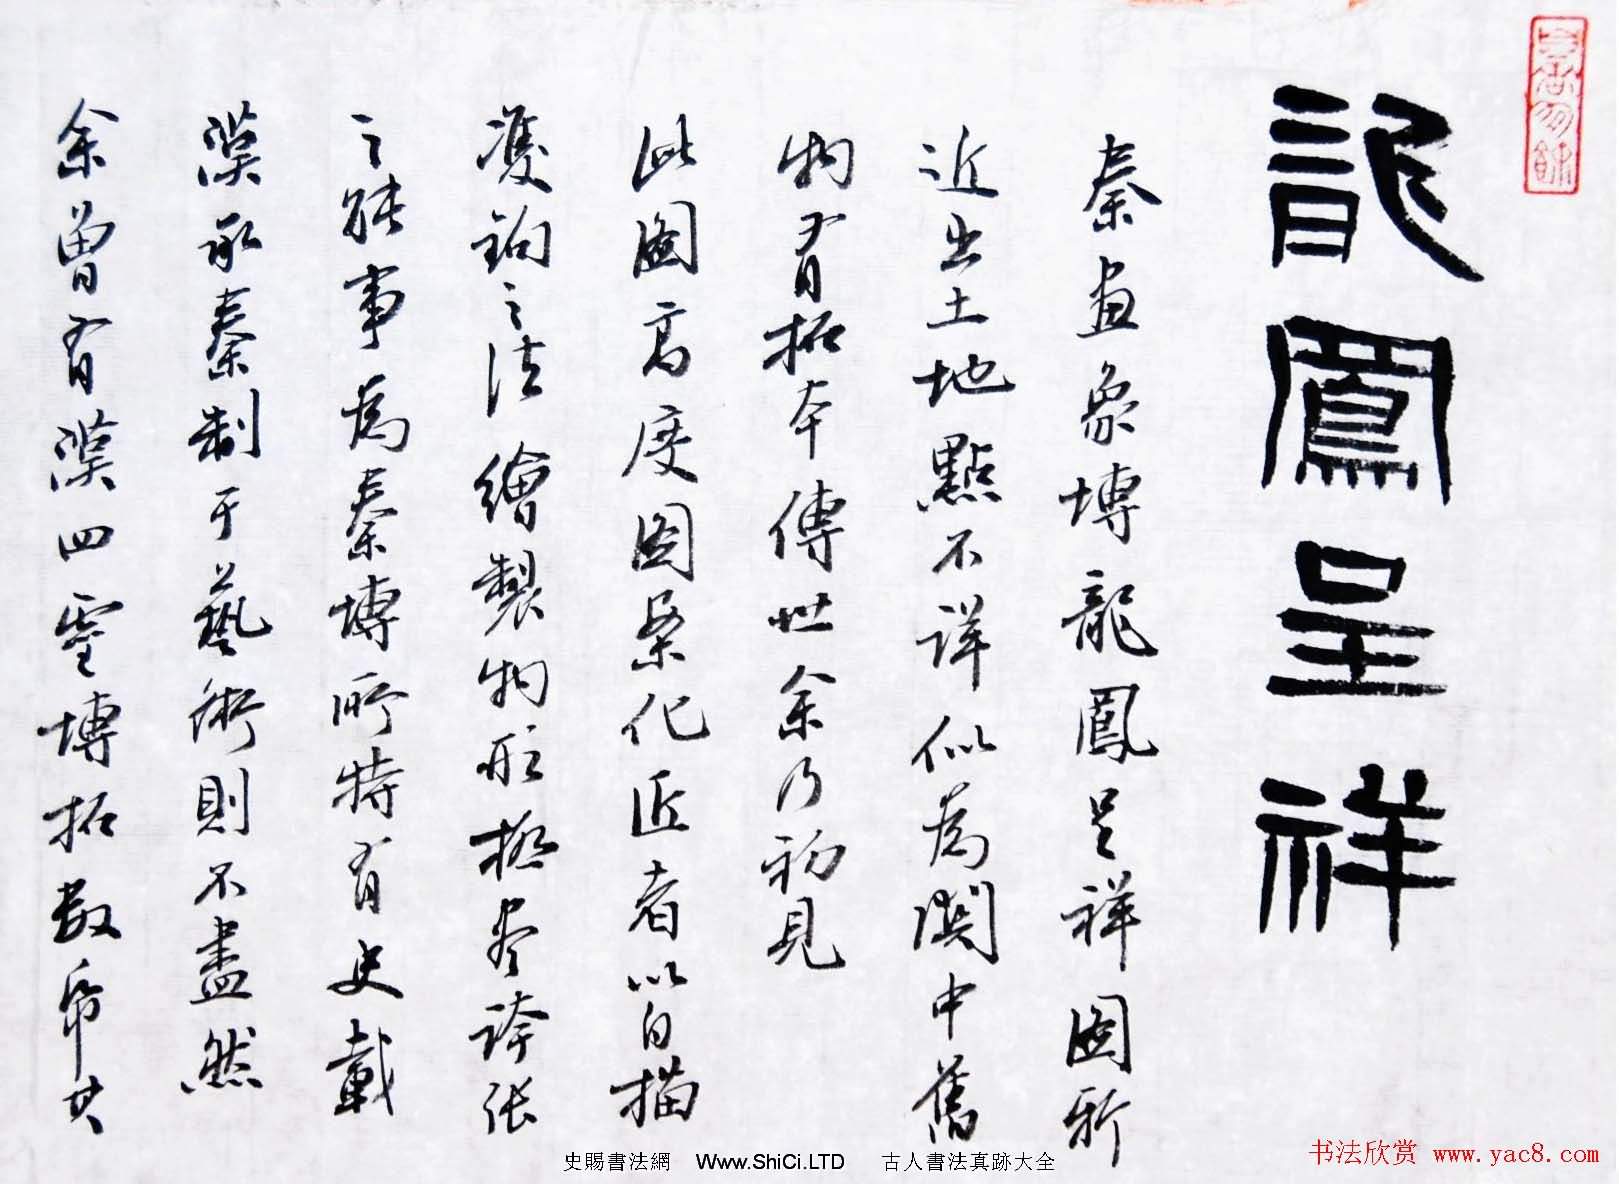 龍鳳呈祥
秦畫象塼龍鳳呈祥圖新
近出土地點不詳似為關中舊
物有拓本傳世余乃初見
此圖高度圖案化匠者以白描
雙鉤之法繪製物形極盡誇张
之能事為秦塼所特有史載
漢承秦制于藝術則不盡然
余曾有漢四靈塼拓數帋其
史賜書法網 Www.ShiCi.LTD 古人書法真跡大全
书法欣赏 www.yac8.com